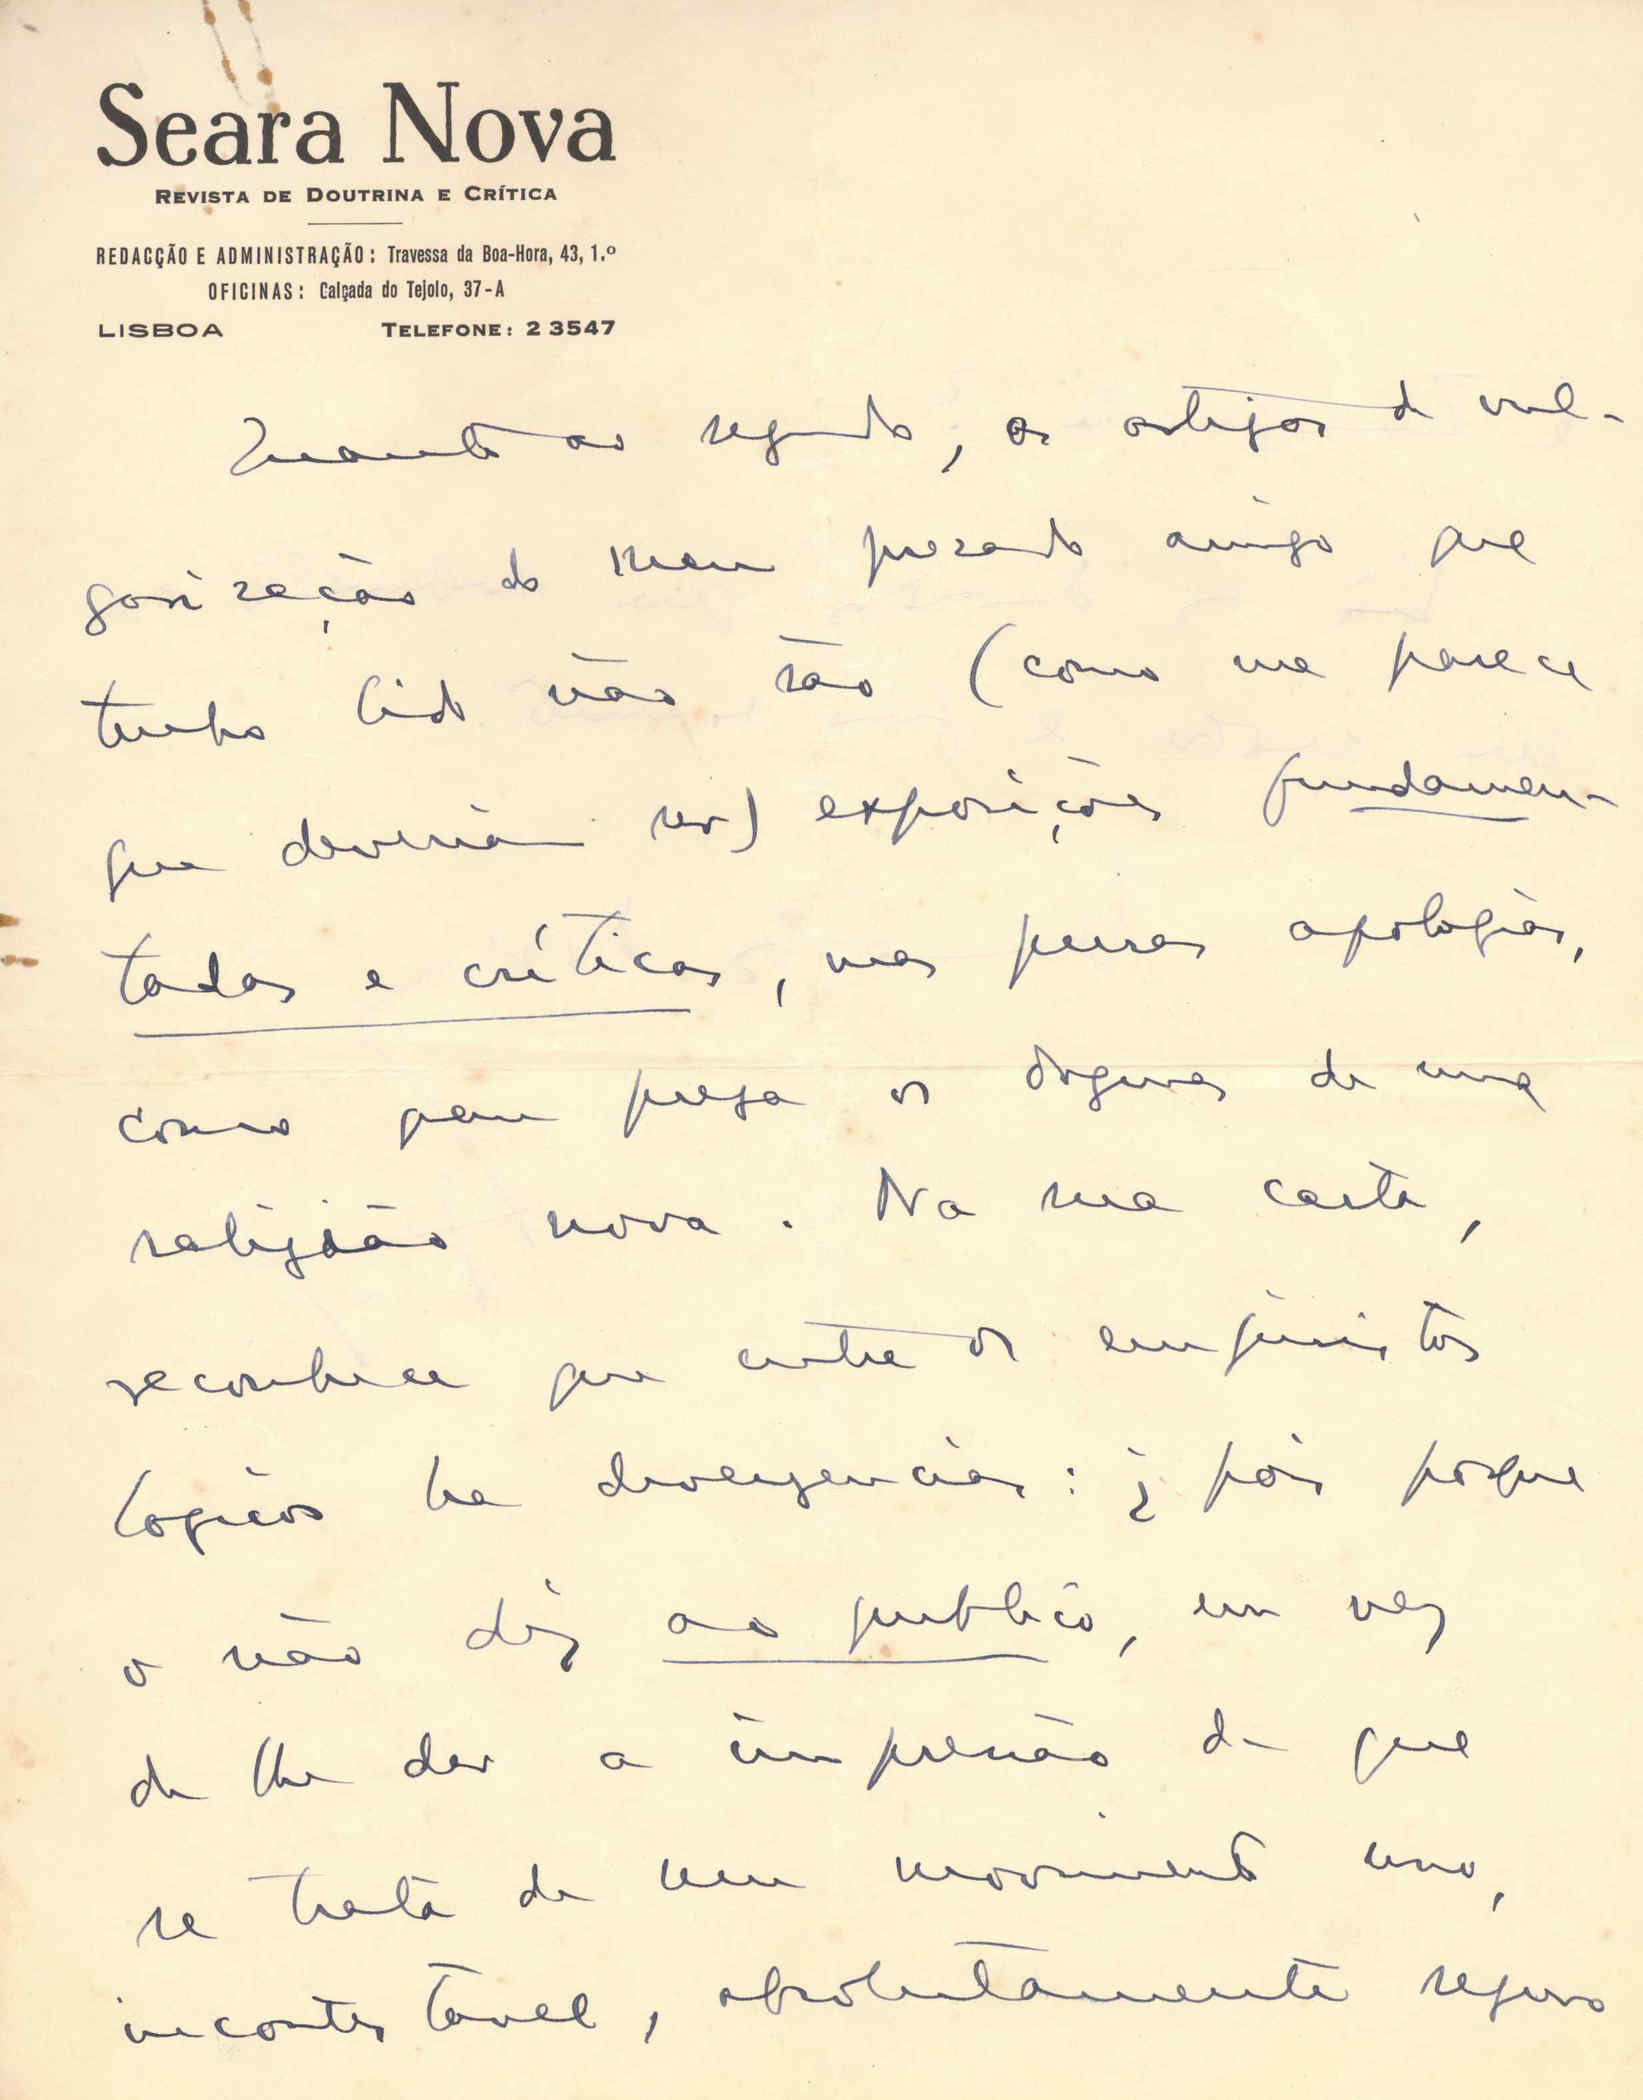 Seara Nova
REVISTA DE DOUTRINA E CRÍTICA
REDACÇÃO E ADMINISTRAÇÃO: Travessa da Boa-Hora, 43, 1.º
OFICINAS: Calçada do Tejolo, 37-A
LISBOA TELEFONE: 2 3547
Quanto ao segundo, os artigos de vul-
garização do meu prezado amigo que
tenho lido não são (como me parece
que deveriam ser) exposições fundamen-
tadas e críticas, mas puras apologias,
como quem prega os dogmas de uma
religião nova. Na sua carta,
reconhece que entre os empiristas
logicos ha divergencias: ¿pois porque
o não diz ao publico, em vez
de lhe dar a impressão de que
se trata de um movimento uno,
incontestavel, absolutamente seguro